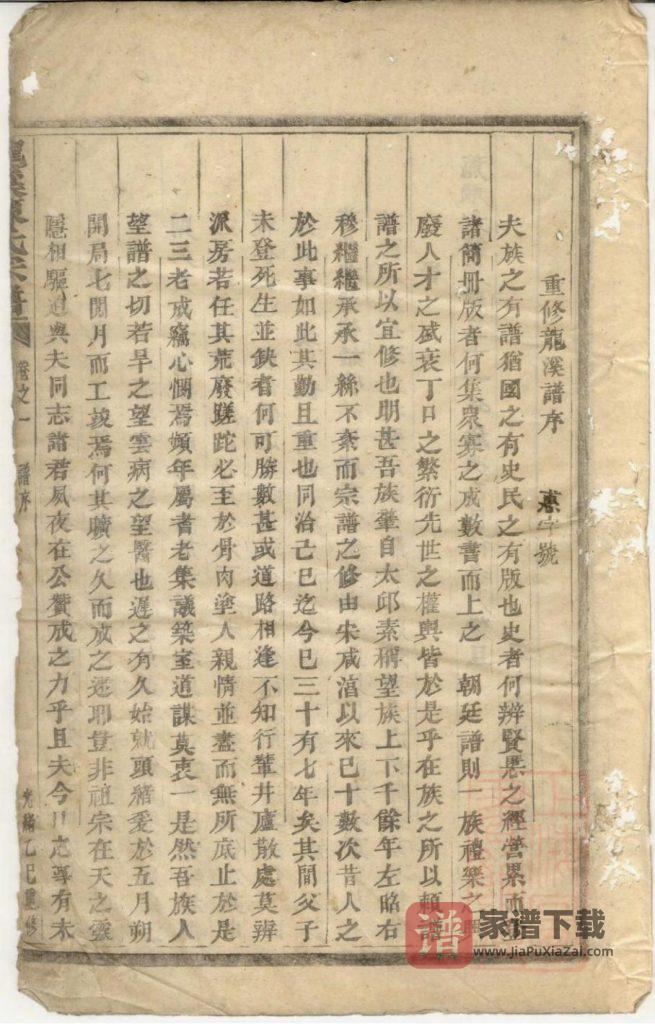 重修龍溪譜序 惠字號
夫族之有譜猶國之有史民之有版也史者何辨賢愚之經營累而
諸簡冊版者何集衆寡之成數書而上之 朝廷譜則一族禮樂之
廢人才之盛衰丁口之繁衍先世之權輿皆於是乎在族之所以賴譜
譜之所以宜修也明甚吾族肇自太邱素稱望族上下千餘年左昭右
穆繼繼承承一絲不紊而宗譜之修由宋咸淳以來已十數次昔人之
於此事如此其勤且重也同治己巳迄今已三十有七年矣其間父子
未登死生並缺者何可勝數甚或道路相逢不知行輩井廬散處莫辨
派房若任其荒廢蹉跎必至於骨肉塗人親情並盡而無所底止於是
二三老成竊心憫焉頻年屬耆老集議築室道謀莫衷一是然吾族人
望譜之切若旱之望雲病之望醫也遲之有久始就頭緒爰於五月朔
開局七閱月而工竣焉何其曠之久而成之速耶豈非祖宗在天之靈
隱相驅迫與夫同志諸君夙夜在公贊成之力乎且夫今日之尊有未
陳氏宗譜 卷之一 譜序 光緒乙巳重修
谱 家谱下载
www.jiaPuXiaZai.com